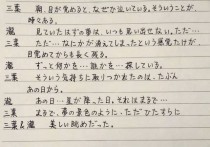 三葉 朝、目が覚めると、なぜか泣いている。そういうことが、
時々ある。
瀧 見ていたはずの夢は、いつも思い出せない。ただ…
三葉 ただ…なにかが消えてしまったという感覚だけが、
目覚めてからも長く残る。
瀧 ずっと何かを…誰かを…探している。
三葉 そういう気持ちに取りつかれたのは、たぶん
あの日から。
瀧 あの日…星が降った日。それはまるで…
三葉 まるで、夢の景色のように、ただひたすらに
三葉&瀧 美しい眺めだった。